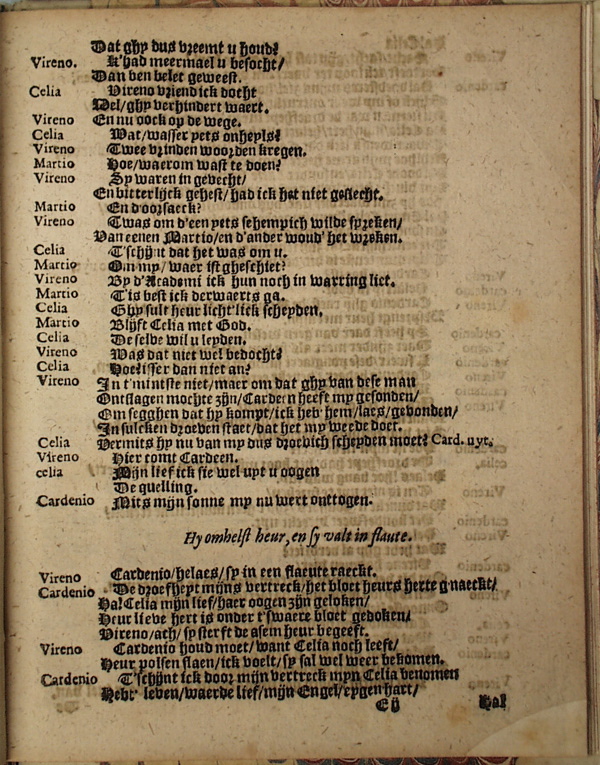 Dat ghy dus vreemt u houd?
Vireno. K'had meermael u besocht/
Dan ben belet geweest.
Celia Vireno vriend ick docht
Wel/ghy verhindert waert.
Vireno En nu oock op de wege.
Celia Wat/wasser yets onheyls?
Vireno Twee vrinden woorden kregen.
Martio Hoe/waerom wast te doen?
Vireno Sy waren in gevecht/
En bitterlijck gehest/had ick het niet geslecht.
Martio En d'oorsaeck?
Vireno Twas om d'een yets schempich wilde spreken/
Van eenen Martio/en d'ander woud' het wreken.
Celia T'schijnt dat het was om u.
Martio Om my/waer ist gheschiet?
Vireno By d'Academi ick hun noch in warring liet.
Martio T'is best ick derwaerts ga.
Celia Ghy sult heur licht'lick scheyden.
Martio Blijft Celia met God.
Celia De selve wil u leyden.
Vireno Was dat niet wel bedocht?
Celia Hoe/isser dan niet an?
Vireno In t'minste niet/maer om dat ghy van dese man
Ontslagen mochte zijn/Cardeen heeft my gesonden/
Om segghen dat hy kompt/ick heb hem/laes/gevonden/
In sulcken droeven staet/dat het my weede doet.
Celia Vermits hy nu van my dus droevich scheyden moet? Card. uyt.
Vireno Hier comt Cardeen.
celia Mijn lief ick sie wel uyt u oogen
De quelling.
Cardenio Mits mijn sonne my nu wert onttogen.
Hy omhelst heur, en sy valt in flaute.
Vireno Cardenio/helaes/sy in een flaeute raeckt.
Cardenio De droefheyt mijns vertreck/het bloet heurs herte g'naeckt/
Ha! Celia mijn lief/haer oogen zijn geloken/
Heur lieve hert is onder t'swaere bloet gedoken/
Vireno/ach/sy sterft de asem heur begeeft.
Vireno Cardenio houd moet/want Celia noch leeft/
Heur polsen slaen/ick voelt/sy sal wel weer bekomen.
Cardenio T'schijnt ick door mijn vertreck myn Celia benomen
Hebt' leven/waerde lief/mijn Engel/eygen hart/
E ij Ha!